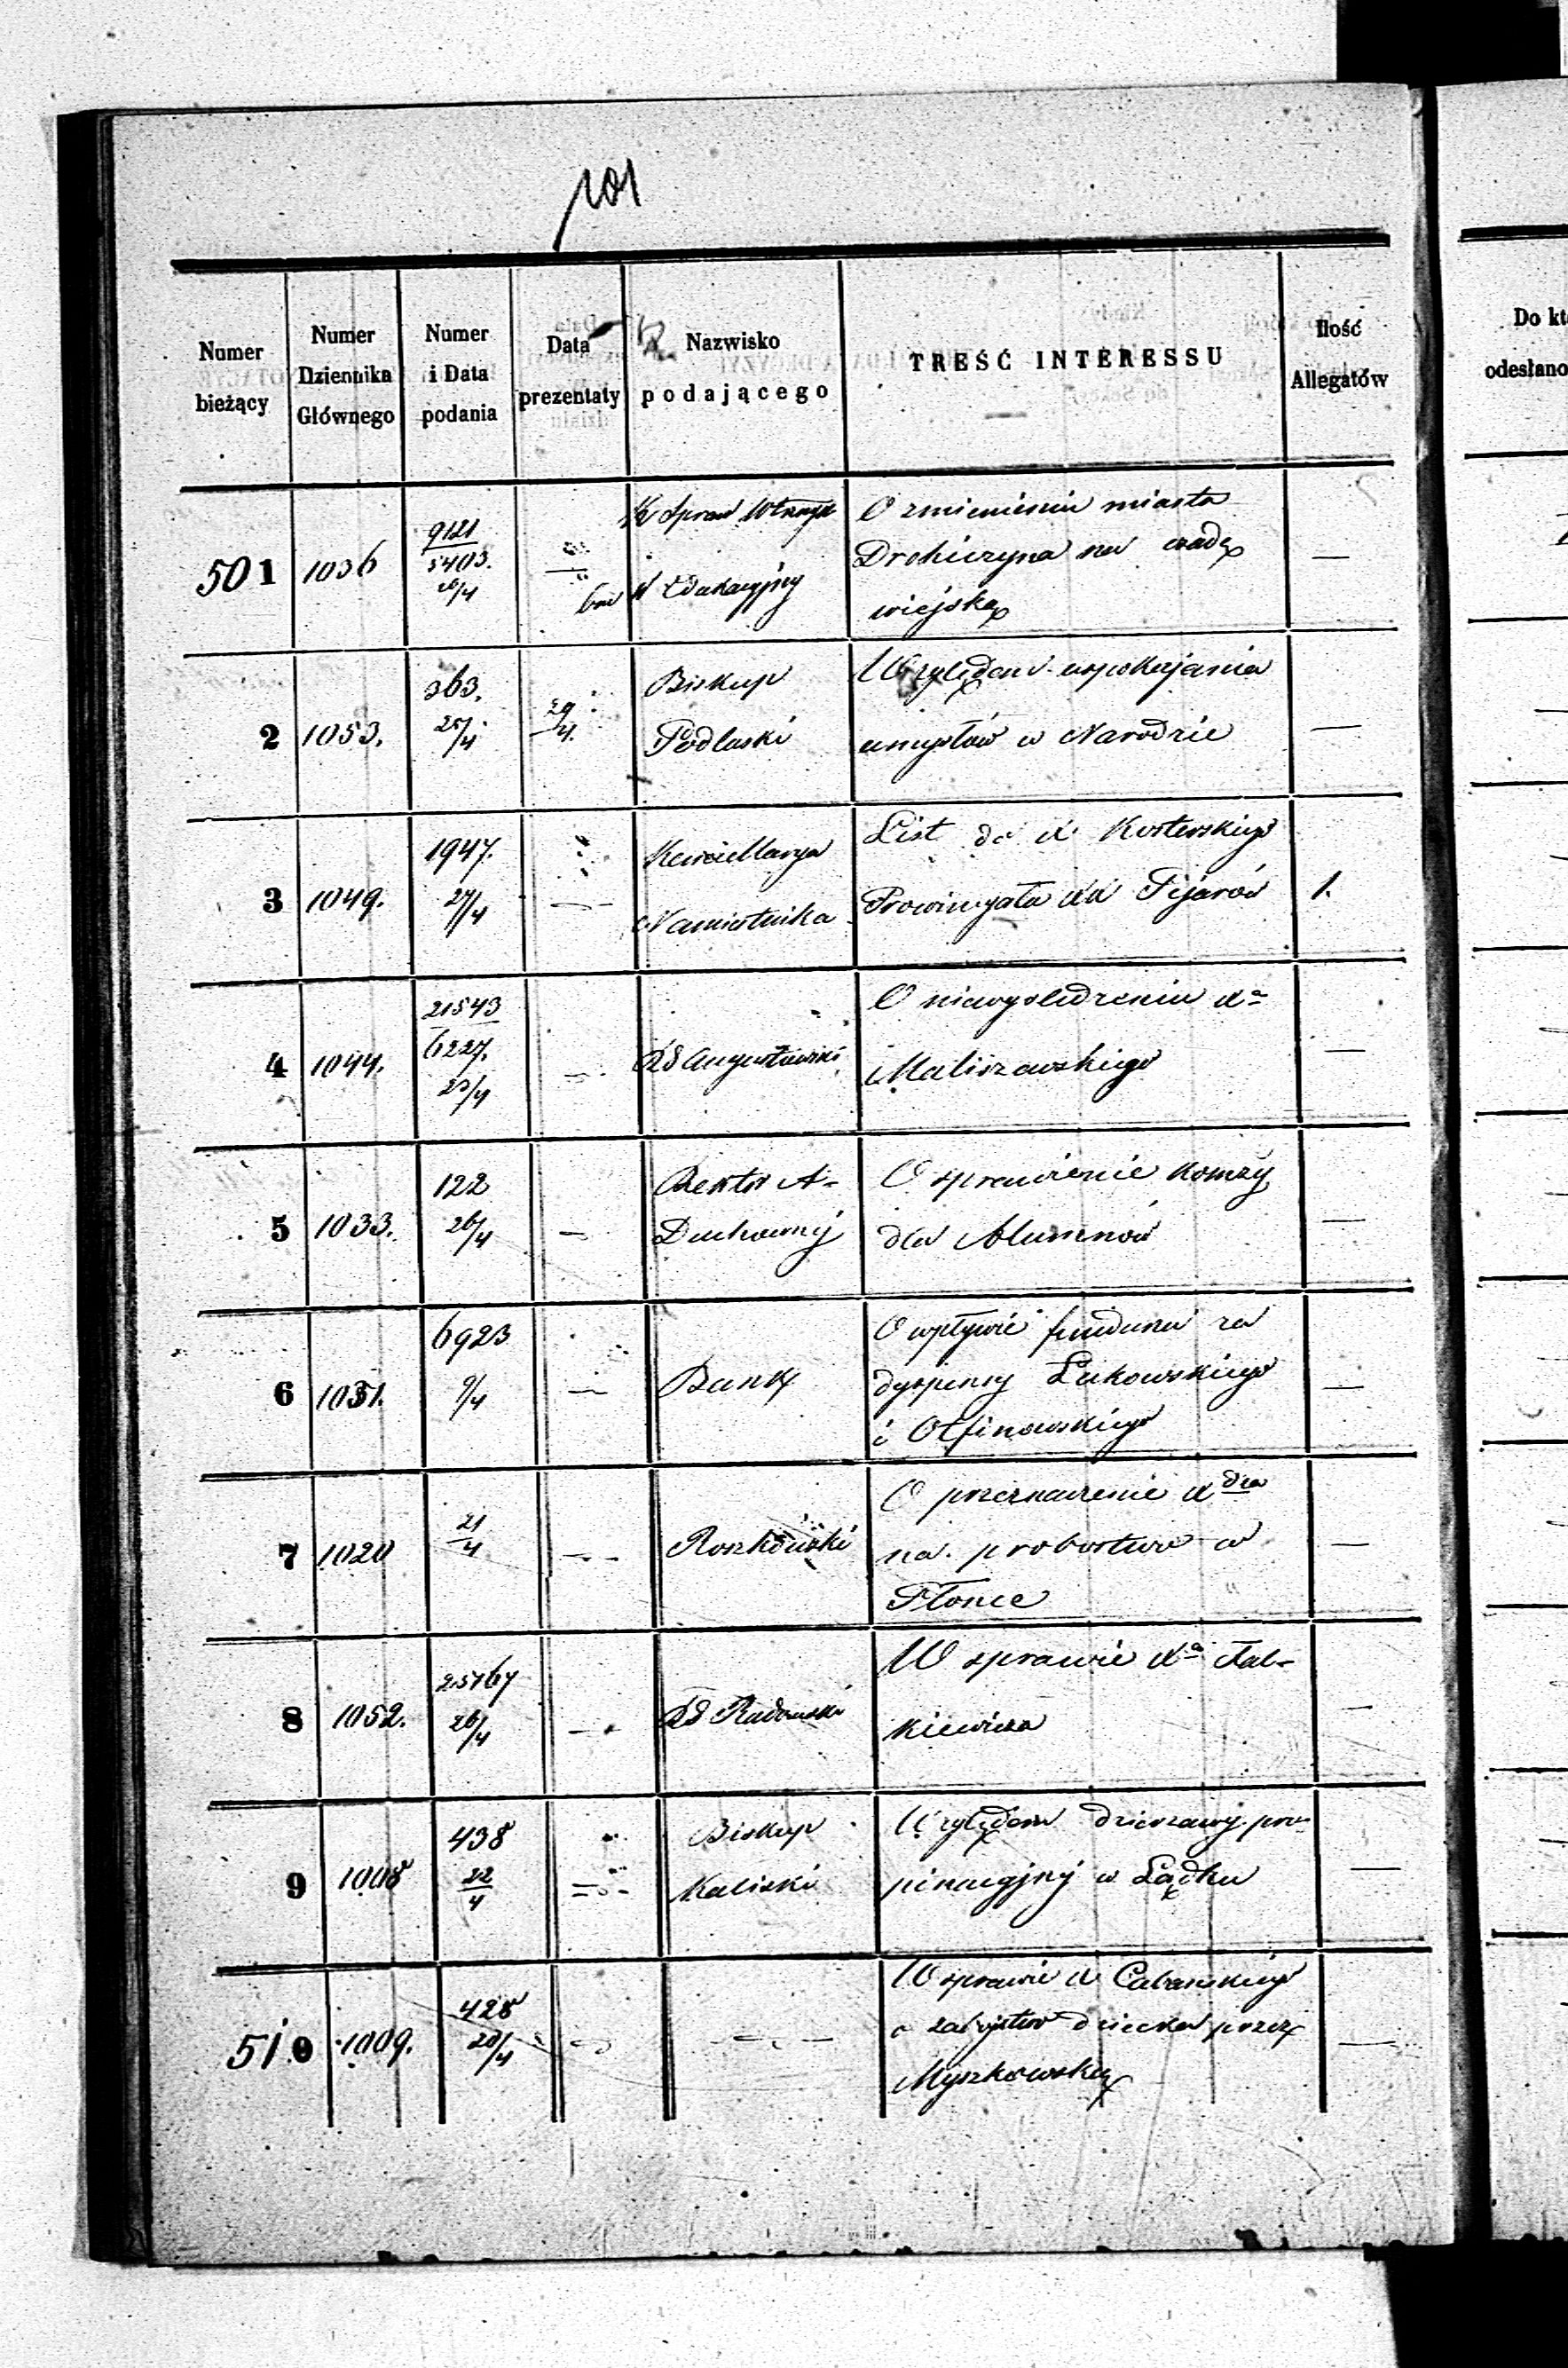 101
Numer bieżący
Numer Dziennika Głównego
Numer i Data podania
Data prezentaty
Nazwisko podającego
TREŚĆ INTERESSU
Ilość Allegatów
Do
odesłano
501 1036 9121 O zmienieniu miasta
5403. Drohiczyna na osadę —
26/4 wiejską
2 1053. 363. 29/4. Biskup Względem uspokajania —
25/4 Podlaski umysłów w Narodzie
3 1049. 1947. Kancellarya List do X Kosterskiego 1.
27/4 — Namiestnika Prowincyała XX Pijarów
4 1044. 21543 O niewyśledzeniu Xa —
6227. — Rd Augustowski Maliszewskiego
23/4
5 1033. 122 Rektor A- O sprawienie komży —
26/4 — Duchowny dla Alumnów
6 1031. 6923 O wpływie funduszu za
9/4 — Bank dyspensy Łukowskiego —
i Olfinowskiego
7 1020 21/4 — Roszkowski O przeznaczenie Xdza
na probostwo w —
Płonce
8 1052. 25767 Rd Radomski W sprawie Xa Fal- —
26/4 — kiewicza
9 1008 438 Biskup Względem dzierżawy pro- —
22/4 — Kaliski pinacyjnej w Lądku
510 1009. 428 W sprawie X Cabańskiego
20/4 — — o zabójstwo dziecka przez —
Myszkowską